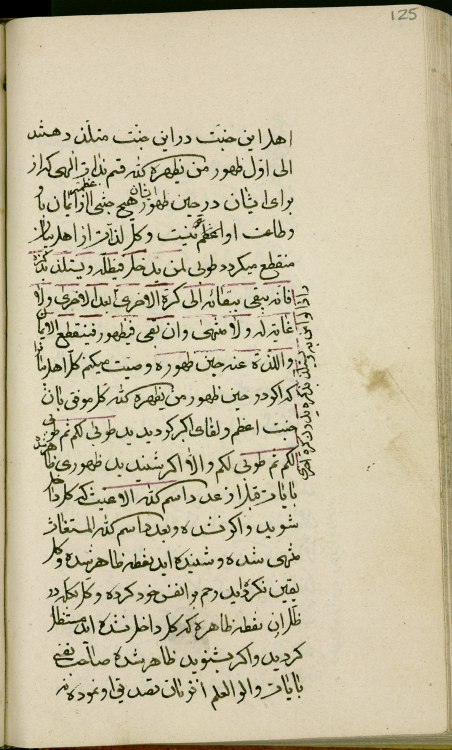 125
اهل این جنت در این جنت متلذذ هستند
الی اول ظهور من یظهره الله قسم بذات الهی که از
برای ایشان در حین ظهور ایشان هیچ جنتی از ایمان باو
و طاعت او اعظم نیست و کل لذات از اهل بیان
منقطع میگردد طوبی لمن یدخل فی ظله و یتلذذ
فانه یبقی ببقائه الی کرة الاخری بعد الاخری ولا
غایة له ولا منتهی وان نفی فی ظهور فینقطع الایمان
واللذة عنه حین ظهوره وصیت میکنم کل اهل بیان را
که اگر در حین ظهور من یظهره الله کل موقن بان
جنت اعظم و لقای اکبر گردیدید طوبی لکم ثم طوبی
لکم ثم طوبی لکم والا اگر شنیدید ظهوری ظاهر شده
بایات قبل از عدد اسم الله الاغیث که کل داخل
شوید و اگر نشده و بعدد اسم الله المستغاث
منتهی شده و شنیده اید نقطه ظاهر شده و کل
یقین نکرده اید رحم بر انفس خود کرده و کل بکله در
ظل ان نقطه ظاهره که کل داخل نشده اید مستظل
گردید و اگر بشنوید ظاهر شده صاحب نفسی
بایات و اولو العلم از